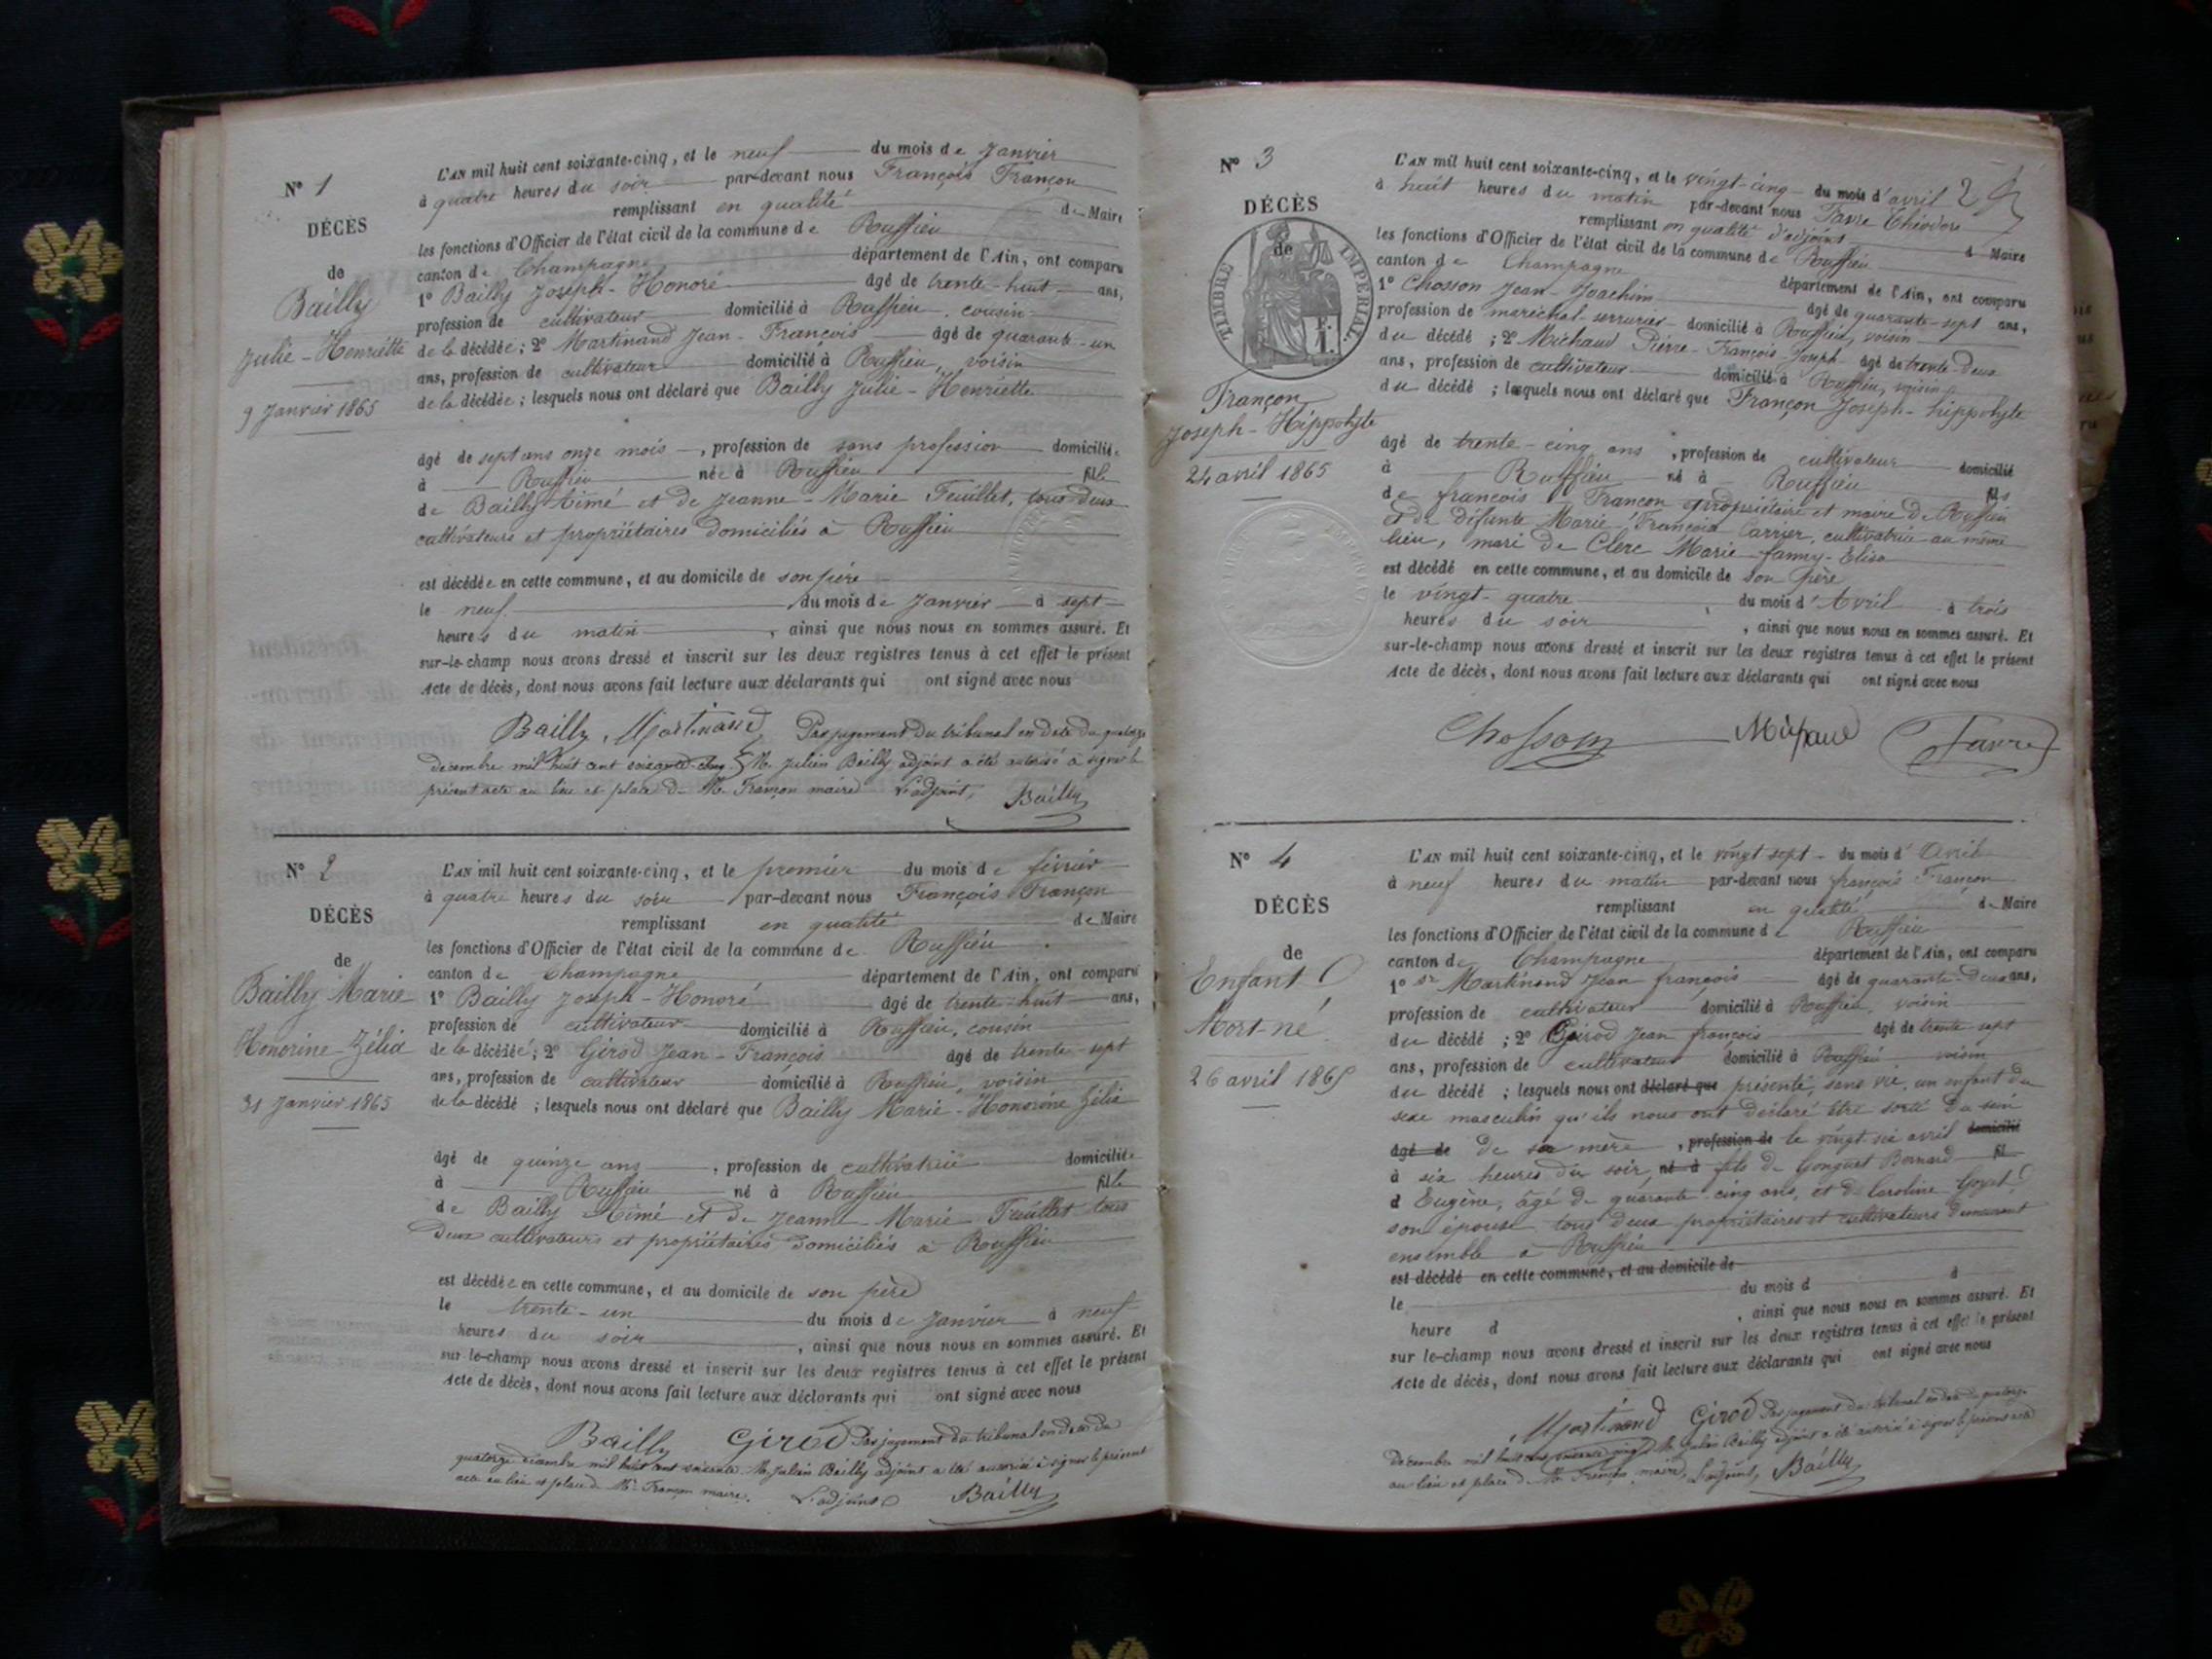 N° 1
DÉCÈS
de
Bailly
Julie-Henriette
9 Janvier 1865
L'AN mil huit cent soixante-cinq, et le neuf du mois de Janvier
à quatre heures du soir par-devant nous François Françon
remplissant en qualité de Maire
les fonctions d'Officier de l'état civil de la commune de Ruffieu
canton de Champagne département de l'Ain, ont comparu
1° Bailly Joseph-Honoré âgé de trente-huit ans,
profession de cultivateur domicilié à Ruffieu, cousin
de la décédée; 2° Martinand Jean-François âgé de quarante-un
ans, profession de cultivateur domicilié à Ruffieu, voisin
de la décédée; lesquels nous ont déclaré que Bailly Julie-Henriette
âgé de sept ans onze mois, profession de sans profession domiciliée
à Ruffieu née à Ruffieu fille
de Bailly Aimé et de Jeanne-Marie Feuillet, tous deux
cultivateurs et propriétaires domiciliés à Ruffieu
est décédée en cette commune, et au domicile de son père
le neuf du mois de Janvier à sept
heures du matin, ainsi que nous nous en sommes assuré. Et
sur-le-champ nous avons dressé et inscrit sur les deux registres tenus à cet effet le présent
Acte de décès, dont nous avons fait lecture aux déclarants qui ont signé avec nous
Bailly Martinand Par jugement du tribunal en date du quatorze
décembre mil huit cent soixante-cinq M. Julien Bailly adjoint a été autorisé à signer le
présent acte au lieu et place de Mr Françon maire L'adjoint, Bailly
N° 2
DÉCÈS
de
Bailly Marie
Honorine-Zélie
31 Janvier 1865
L'AN mil huit cent soixante-cinq, et le premier du mois de février
à quatre heures du soir par-devant nous François Françon
remplissant en qualité de Maire
les fonctions d'Officier de l'état civil de la commune de Ruffieu
canton de Champagne département de l'Ain, ont comparu
1° Bailly Joseph-Honoré âgé de trente-huit ans,
profession de cultivateur domicilié à Ruffieu, cousin
de la décédée; 2° Girod Jean-François âgé de trente-sept
ans, profession de cultivateur domicilié à Ruffieu, voisin
de la décédé; lesquels nous ont déclaré que Bailly Marie-Honorine Zélie
âgé de quinze ans, profession de cultivatrice domiciliée
à Ruffieu né à Ruffieu fille
de Bailly Aimé et de Jeanne-Marie Feuillet tous
deux cultivateurs et propriétaires domiciliés à Ruffieu
est décédée en cette commune, et au domicile de son père
le trente-un du mois de Janvier à neuf
heures du soir, ainsi que nous nous en sommes assuré. Et
sur-le-champ nous avons dressé et inscrit sur les deux registres tenus à cet effet le présent
Acte de décès, dont nous avons fait lecture aux déclarants qui ont signé avec nous
Bailly Girod Par jugement du tribunal en date du
quatorze décembre mil huit cent soixante M. Julien Bailly adjoint a été autorisé à signer le présent
acte au lieu et place de Mr Françon maire. L'adjoint Bailly
N° 3
DÉCÈS
de
TIMBRE IMPÉRIAL.
Françon
Joseph-Hippolyte
24 avril 1865
L'AN mil huit cent soixante-cinq, et le vingt-cinq du mois d'avril 2
à huit heures du matin par-devant nous Favre Théodore
remplissant en qualité d'adjoint d Maire
les fonctions d'Officier de l'état civil de la commune de Ruffieu
canton de Champagne département de l'Ain, ont comparu
1° Chosson Jean-Joachim âgé de quarante-sept ans,
profession de maréchal-serrurier domicilié à Ruffieu, voisin
du décédé; 2° Michaud Pierre-François-Joseph âgé de trente-deux
ans, profession de cultivateur domicilié à Ruffieu, voisin
du décédé; lesquels nous ont déclaré que Françon Joseph-hippolyte
âgé de trente-cinq ans, profession de cultivateur domicilié
à Ruffieu né à Ruffieu fils
de françois Françon propriétaire et maire de Ruffieu
et de défunte Marie-Françoise Carrier, cultivatrice au même
lieu, mari de Clerc Marie-fanny-Elisa
est décédé en cette commune, et au domicile de son père
le vingt-quatre du mois d'Avril à trois
heures du soir, ainsi que nous nous en sommes assuré. Et
sur-le-champ nous avons dressé et inscrit sur les deux registres tenus à cet effet le présent
Acte de décès, dont nous avons fait lecture aux déclarants qui ont signé avec nous
Chosson Michaud Favre
N° 4
DÉCÈS
de
Enfant
Mort-né
26 avril 1865
L'AN mil huit cent soixante-cinq, et le vingt sept du mois d'Avril
à neuf heures du matin par-devant nous françois Françon
remplissant en qualité de Maire
les fonctions d'Officier de l'état civil de la commune d Ruffieu
canton de Champagne département de l'Ain, ont comparu
1° Sr Martinand Jean françois âgé de quarante-deux ans,
profession de cultivateur domicilié à Ruffieu, voisin
du décédé; 2° Girod Jean françois âgé de trente-sept
ans, profession de cultivateur domicilié à Ruffieu voisin
du décédé; lesquels nous ont déclaré que présenté, sans vie, un enfant du
sexe masculin qu'ils nous ont déclaré être sorti du sein
âgé de de sa mère, profession de le vingt-six avril domicilié
à six heures du soir, né à fils de Gonguet Bernard fil
d Eugène, âgé de quarante-cinq ans, et de Caroline Goyet
son épouse tous deux propriétaires et cultivateurs demeurant
ensemble à Ruffieu
est décédé en cette commune, et au domicile de
le du mois d à
heure d, ainsi que nous nous en sommes assuré. Et
sur le-champ nous avons dressé et inscrit sur les deux registres tenus à cet effet le présent
Acte de décès, dont nous avons fait lecture aux déclarants qui ont signé avec nous
Martinand Girod Par jugement du tribunal en date du quatorze
décembre mil huit cent soixante-cinq M. Julien Bailly adjoint a été autorisé à signer le présent acte
au lieu et place de Mr Françon maire, L'adjoint, Bailly